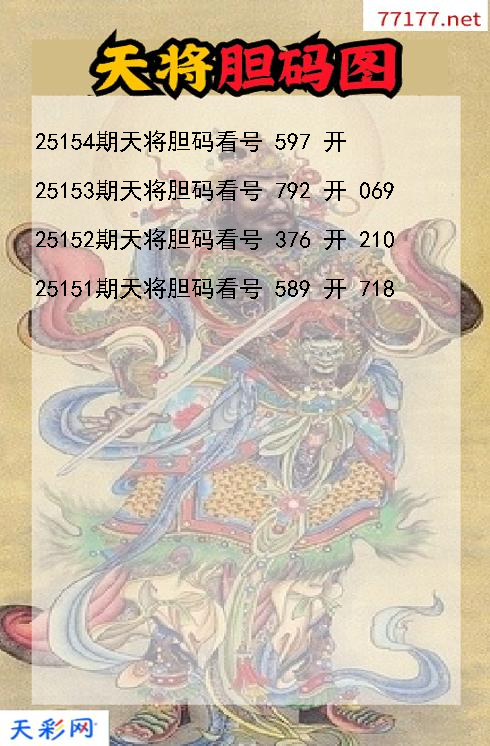 77177.net
天将胆码图
25154期天将胆码看号 597 开
25153期天将胆码看号 792 开 069
25152期天将胆码看号 376 开 210
25151期天将胆码看号 589 开 718
天彩网